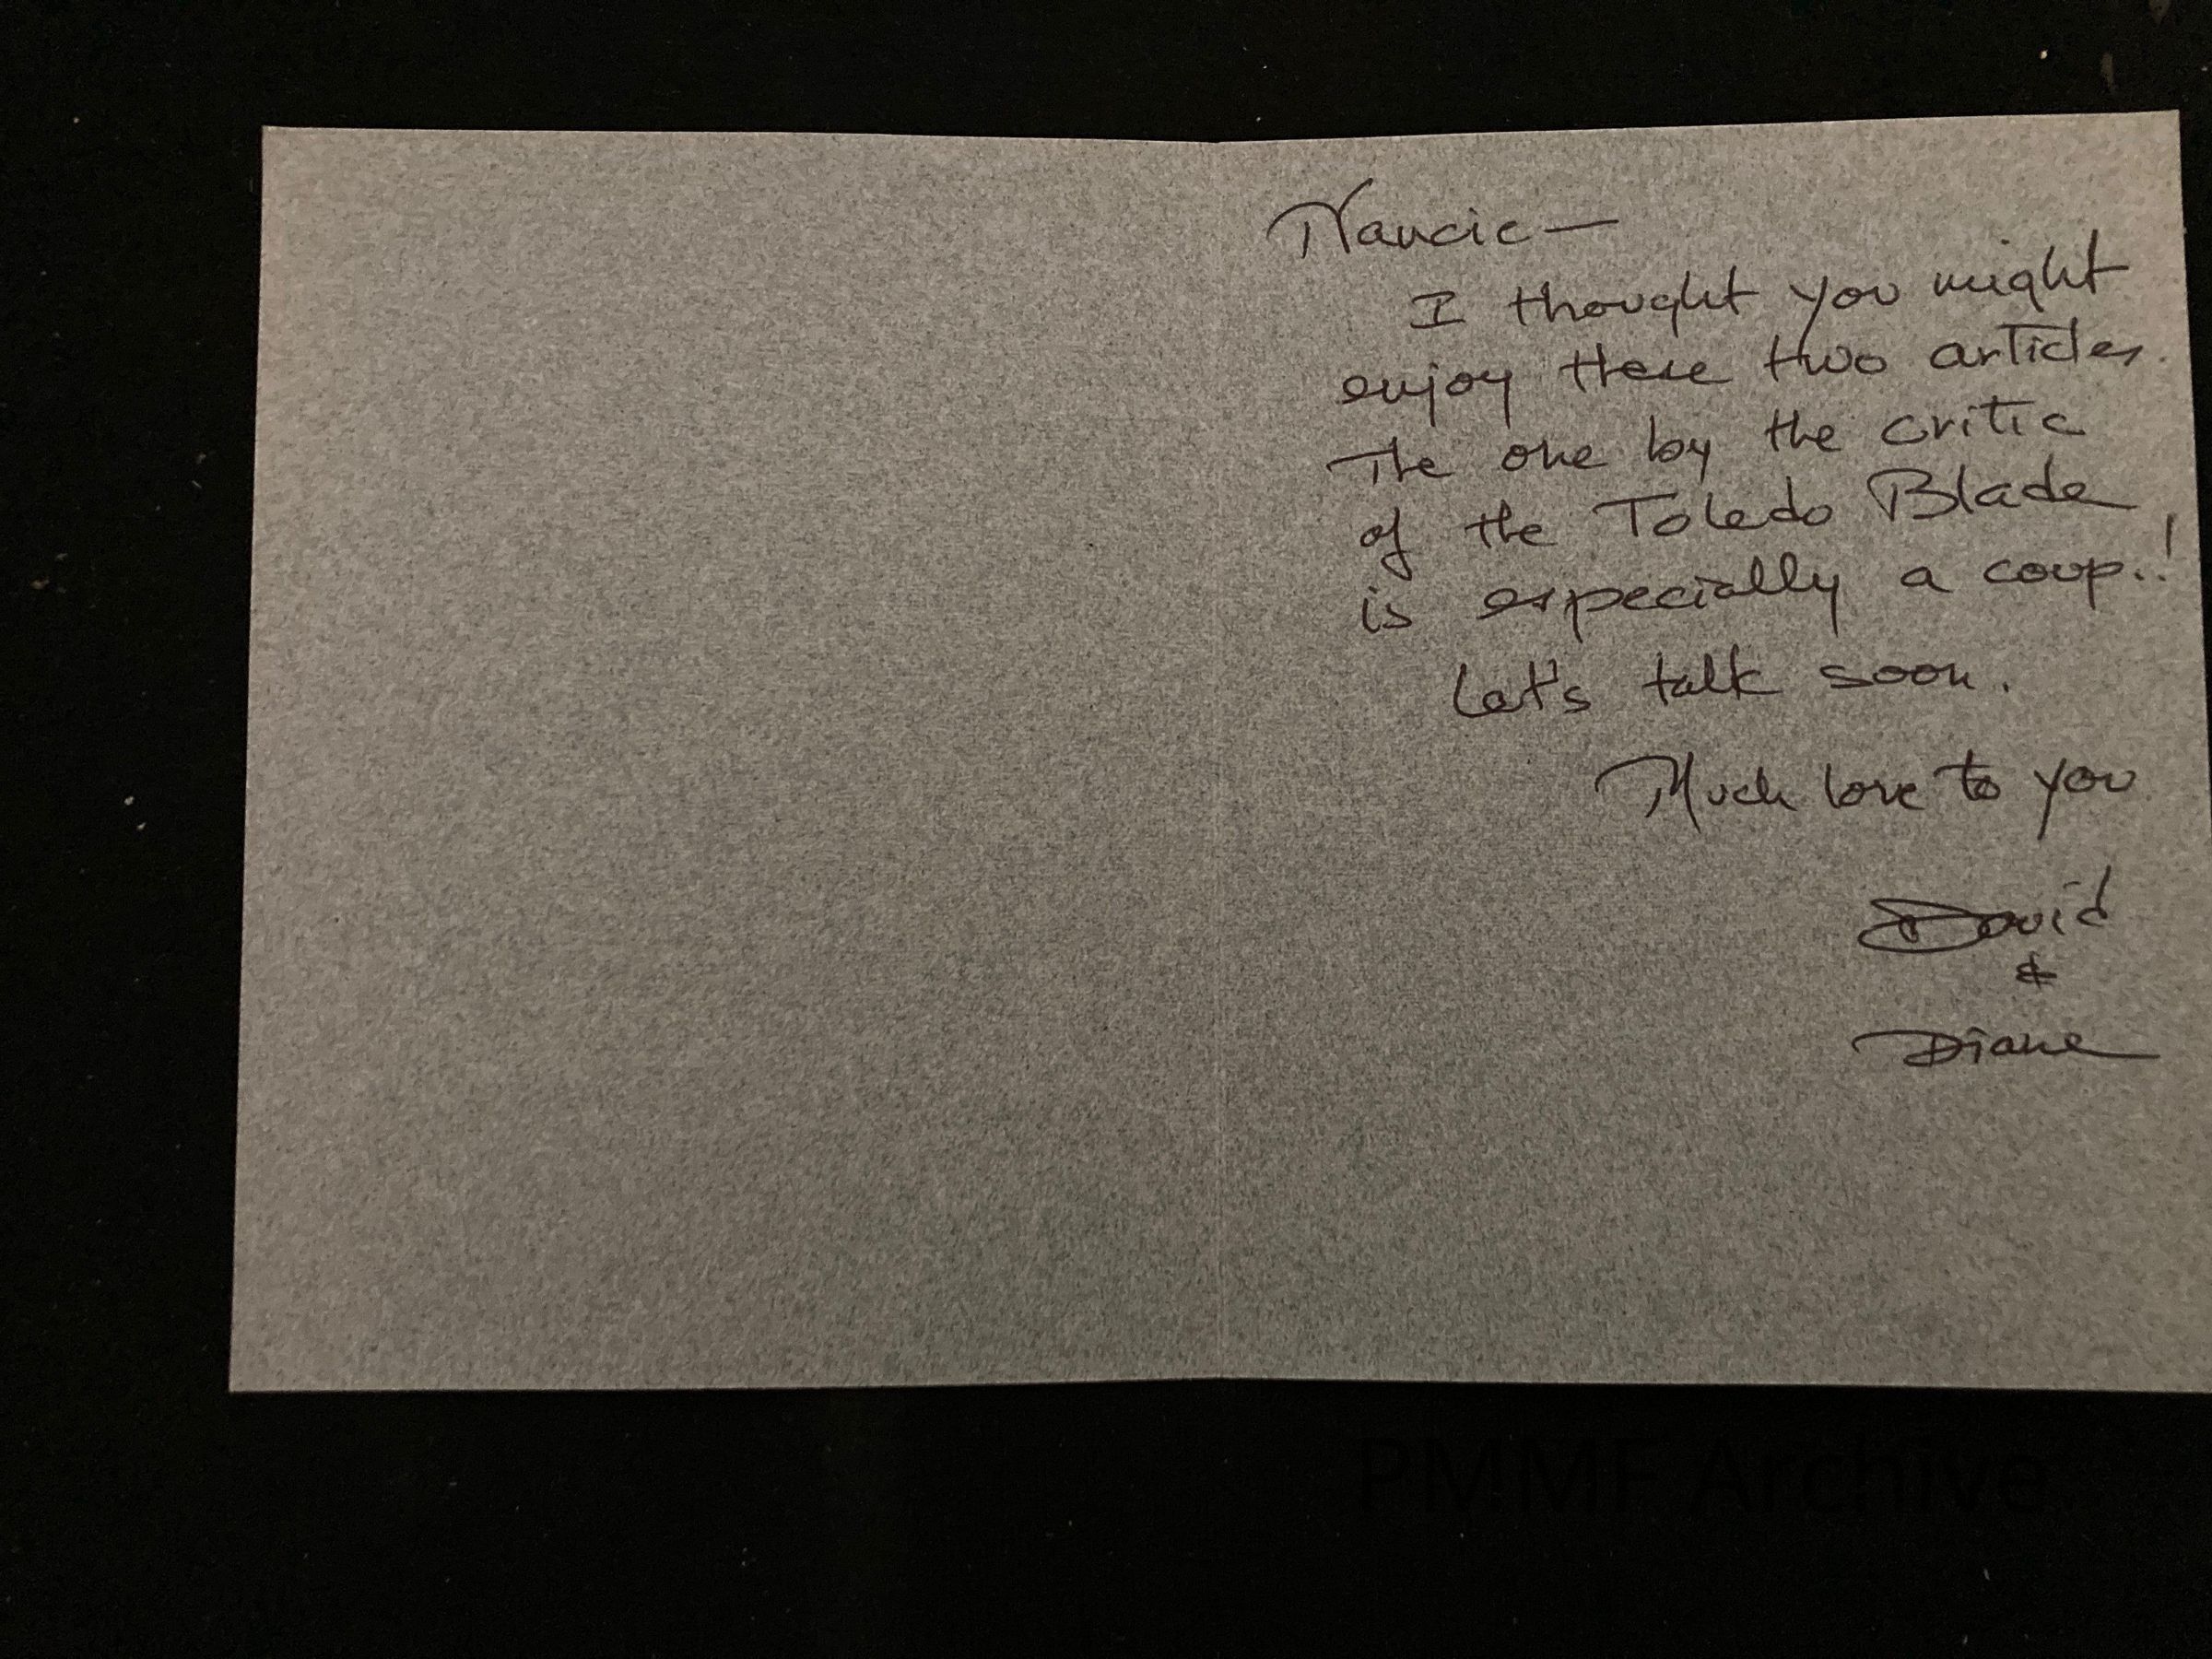 Nancie —
I thought you might
enjoy these two articles.
The one by the critic
of the Toledo Blade
is especially a coup..!
Let's talk soon.
Much love to you
David
&
Diane
PMMF Archive